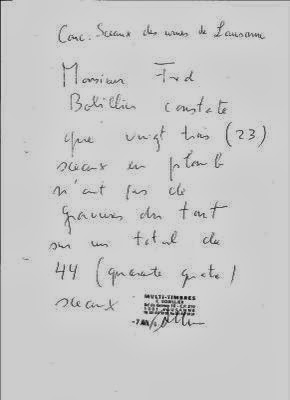 Conc. Sceaux des urnes de Lausanne
Monsieur Fred
Botillier constate
que vingt trois (23)
sceaux en plomb
n'ont pas de
gravures du tout
sur un total de
44 (quarante quatre)
sceaux
MULTI-TIMBRES